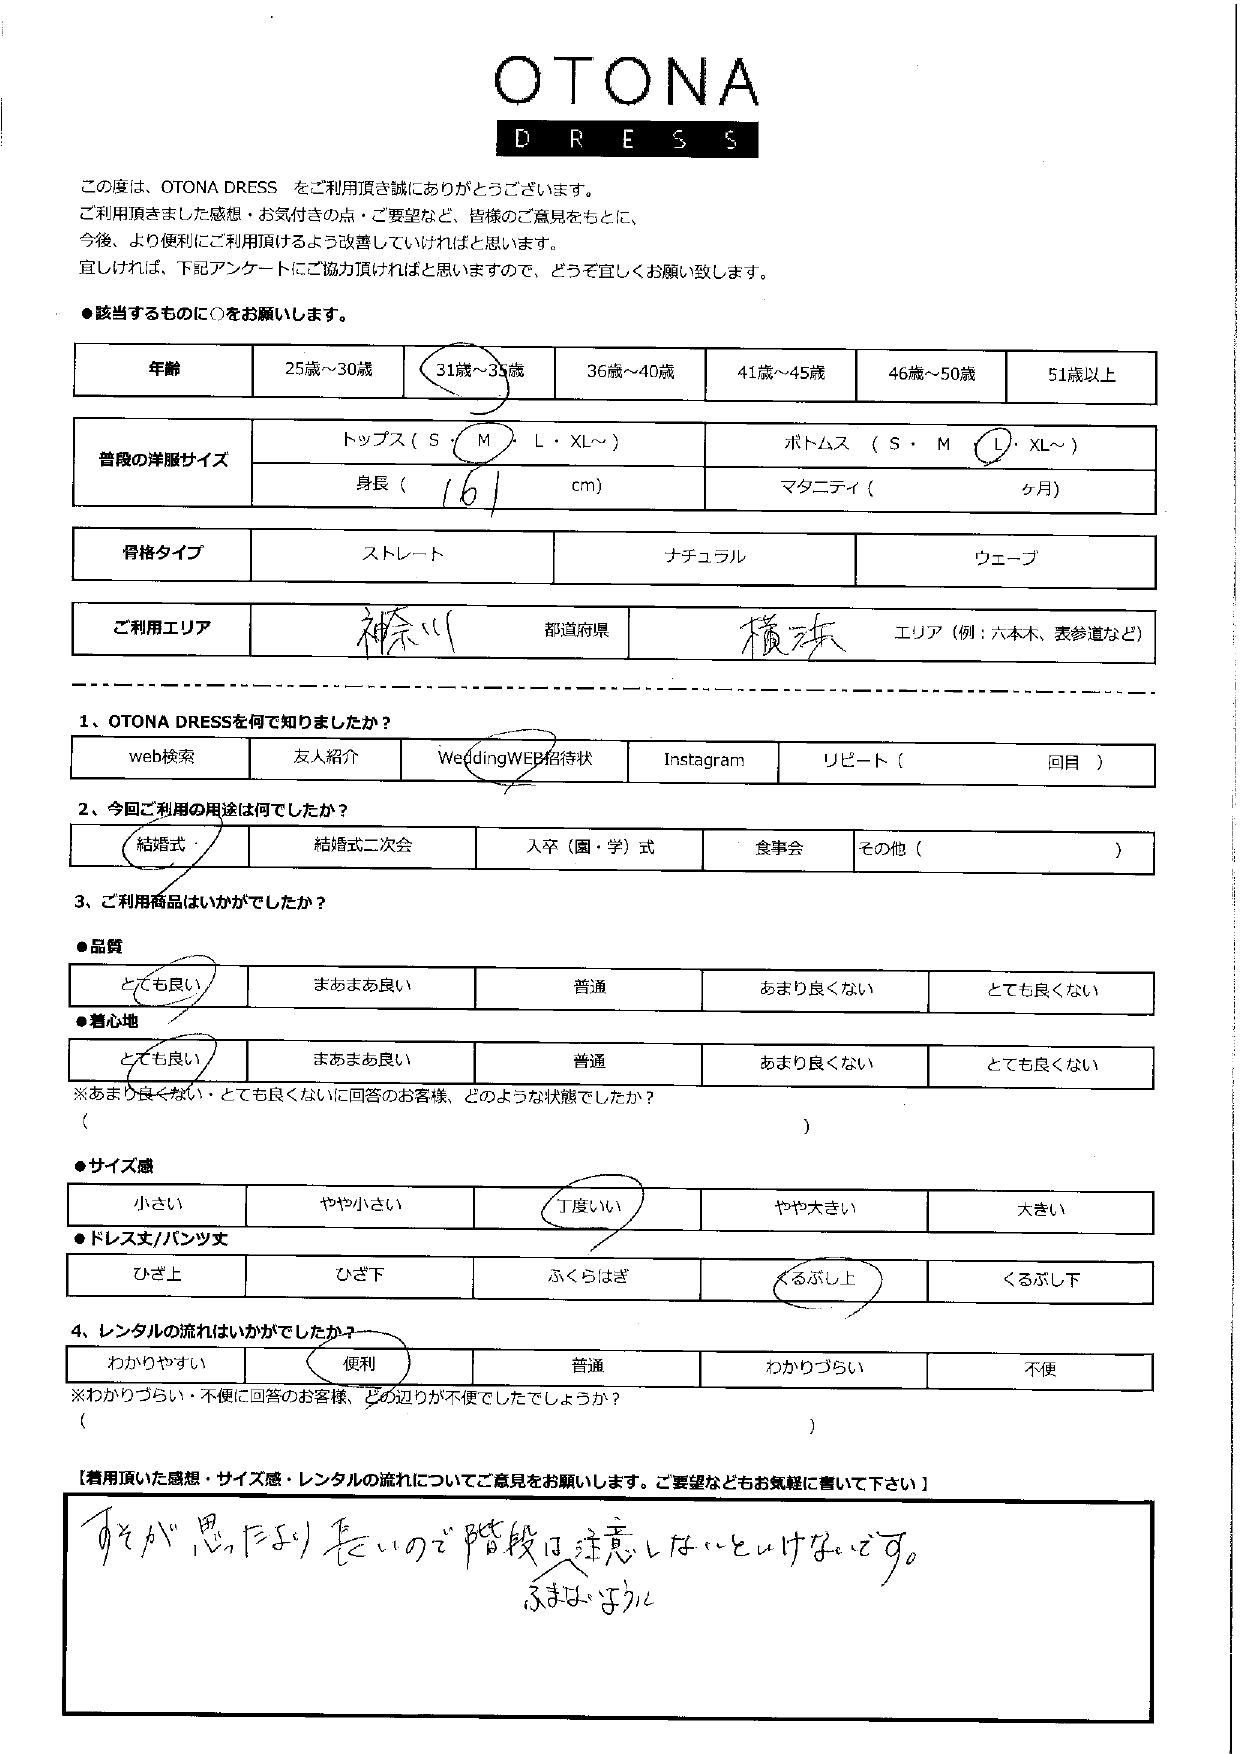 OTONA
DRESS
この度は、OTONA DRESS　をご利用頂き誠にありがとうございます。
ご利用頂きました感想・お気付きの点・ご要望など、皆様のご意見をもとに、
今後、より便利にご利用頂けるよう改善していければと思います。
宜しければ、下記アンケートにご協力頂ければと思いますので、どうぞ宜しくお願い致します。
●該当するものに○をお願いします。
年齢 25歳～30歳 31歳～35歳 36歳～40歳 41歳～45歳 46歳～50歳 51歳以上
普段の洋服サイズ トップス ( S ・ M ・ L ・ XL～ ) ボトムス ( S ・ M ・ L ・ XL～ )
身長 ( 161 cm) マタニティ ( ヶ月)
骨格タイプ ストレート ナチュラル ウェーブ
ご利用エリア 神奈川 都道府県 横浜 エリア（例：六本木、表参道など）
1、OTONA DRESSを何で知りましたか？
web検索 友人紹介 WeddingWEB招待状 Instagram リピート ( 回目 )
2、今回ご利用の用途は何でしたか？
結婚式 結婚式二次会 入卒（園・学）式 食事会 その他 ( )
3、ご利用商品はいかがでしたか？
●品質
とても良い まあまあ良い 普通 あまり良くない とても良くない
●着心地
とても良い まあまあ良い 普通 あまり良くない とても良くない
※あまり良くない・とても良くないに回答のお客様、どのような状態でしたか？
( )
●サイズ感
小さい やや小さい 丁度いい やや大きい 大きい
●ドレス丈/パンツ丈
ひざ上 ひざ下 ふくらはぎ くるぶし上 くるぶし下
4、レンタルの流れはいかがでしたか？
わかりやすい 便利 普通 わかりづらい 不便
※わかりづらい・不便に回答のお客様、どの辺りが不便でしたでしょうか？
( )
【着用頂いた感想・サイズ感・レンタルの流れについてご意見をお願いします。ご要望などもお気軽に書いて下さい】
すそが思ったより長いので階段は注意しないといけないです。
ふまないように